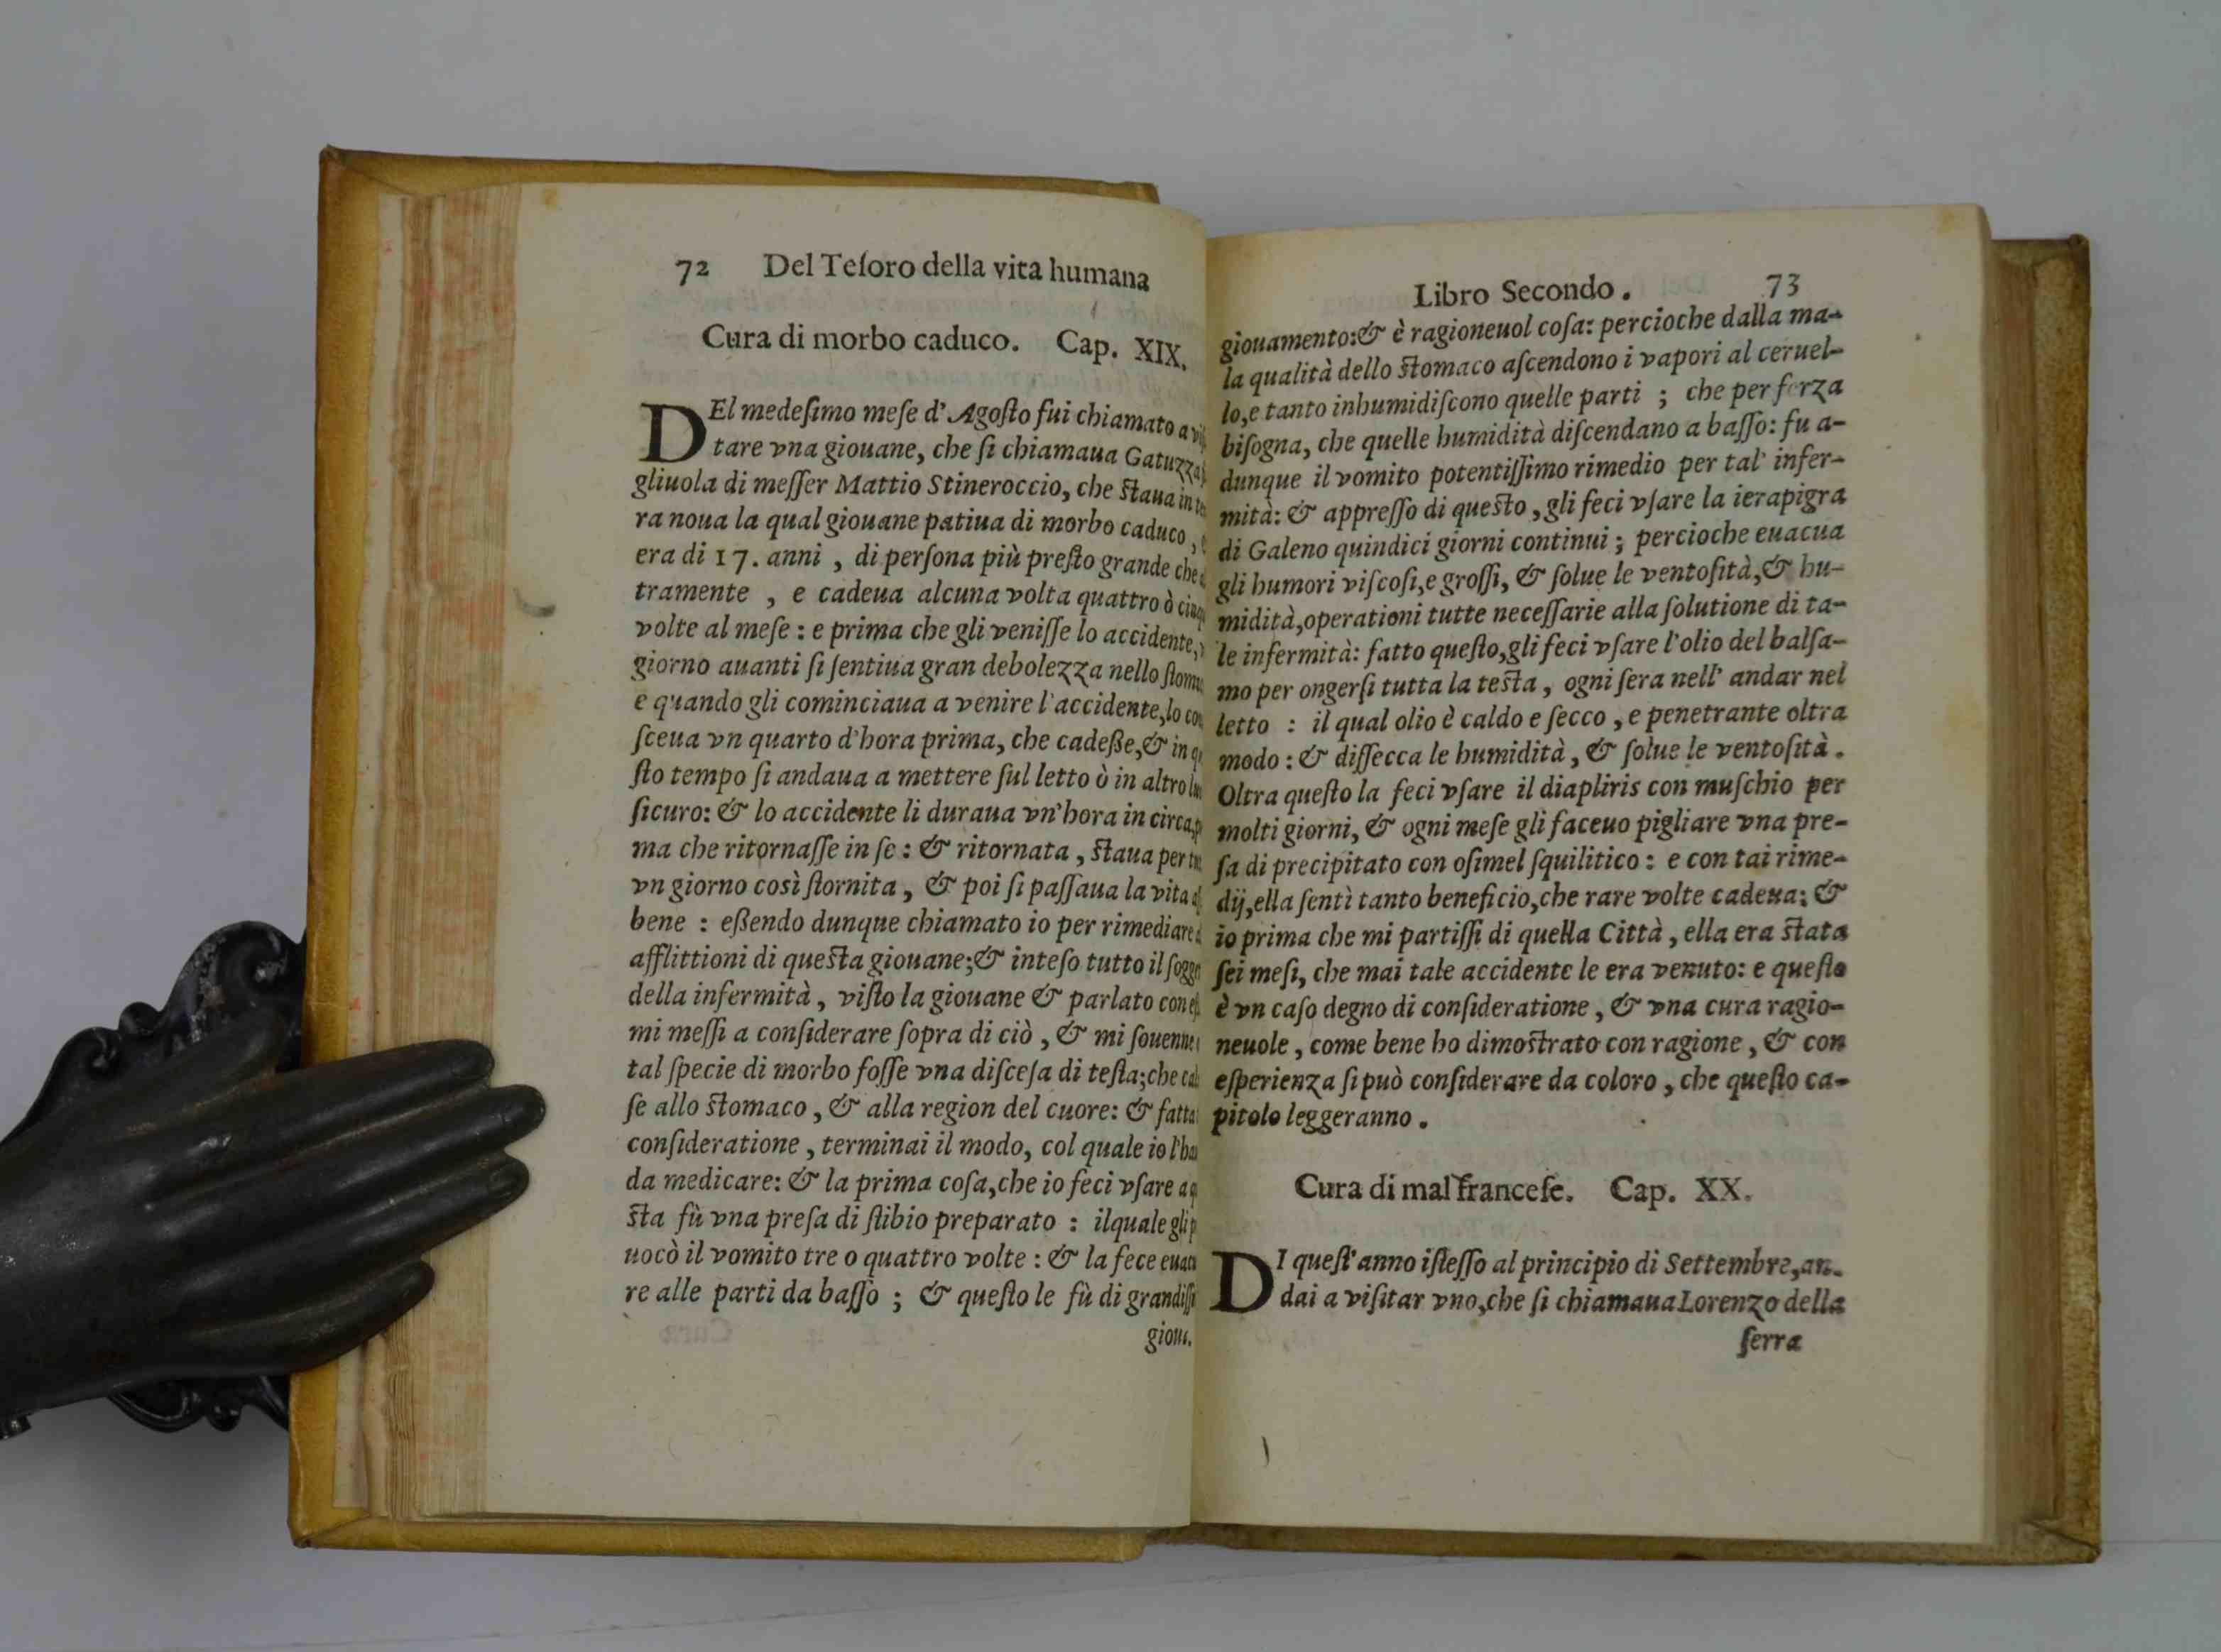 72 Del Teſoro della vita humana
Cura di morbo caduco. Cap. XIX.
DEl medeſimo meſe d'Agoſto fui chiamato a
tare vna giouane, che ſi chiamaua Gatuzza
gliuola di meſſer Mattio Stineroccio, che ſtaua in
ra noua la qual giouane patiua di morbo caduco,
era di 17. anni, di perſona più preſto grande che
tramente, e cadeua alcuna volta quattro ò
volte al meſe: e prima che gli veniſſe lo accidente,
giorno auanti ſi ſentiua gran debolezza nello
e quando gli cominciaua a venire l'accidente, lo
ſceua vn quarto d'hora prima, che cadeße, & in
ſto tempo ſi andaua a mettere ſul letto ò in altro
ſicuro: & lo accidente li duraua vn'hora in circa,
ma che ritornaſſe in ſe: & ritornata, ſtaua per
vn giorno così ſtornita, & poi ſi paſſaua la vita
bene: eßendo dunque chiamato io per rimediare
afflittioni di queſta giouane; & inteſo tutto il
della infermità, viſto la giouane & parlato con
mi meſſi a conſiderare ſopra di ciò, & mi ſouenne
tal ſpecie di morbo foſſe vna diſceſa di teſta; che
ſe allo ſtomaco, & alla region del cuore: & fatta
conſideratione, terminai il modo, col quale io
da medicare: & la prima coſa, che io feci vſare
ſta fù vna preſa di ſtibio preparato: ilquale gli
uocò il vomito tre o quattro volte: & la fece
re alle parti da baſſo; & queſto le fù di
giou.
Libro Secondo. 73
giouamento: & è ragioneuol coſa: percioche dalla ma-
la qualità dello ſtomaco aſcendono i vapori al ceruel-
lo, e tanto inhumidiſcono quelle parti; che per forza
biſogna, che quelle humidità diſcendano a baſſo: fu a-
dunque il vomito potentiſſimo rimedio per tal' infer-
mità: & appreſſo di queſto, gli feci vſare la ierapigra
di Galeno quindici giorni continui; percioche euacua
gli humori viſcoſi, e groſſi, & ſolue le ventoſità, & hu-
midità, operationi tutte neceſſarie alla ſolutione di ta-
le infermità: fatto queſto, gli feci vſare l'olio del balſa-
mo per ongerſi tutta la teſta, ogni ſera nell' andar nel
letto: il qual olio è caldo e ſecco, e penetrante oltra
modo: & diſſecca le humidità, & ſolue le ventoſità.
Oltra queſto la feci vſare il diapliris con muſchio per
molti giorni, & ogni meſe gli faceuo pigliare vna pre-
ſa di precipitato con oſimel ſquilitico: e con tai rime-
dij, ella ſentì tanto beneficio, che rare volte cadeua; &
io prima che mi partiſſi di quella Città, ella era ſtata
ſei meſi, che mai tale accidente le era venuto: e queſto
è vn caſo degno di conſideratione, & vna cura ragio-
neuole, come bene ho dimoſtrato con ragione, & con
eſperienza ſi può conſiderare da coloro, che queſto ca-
pitolo leggeranno.
Cura di mal franceſe. Cap. XX.
DI queſt'anno iſteſſo al principio di Settembre, an-
dai a viſitar vno, che ſi chiamaua Lorenzo della
ſerra